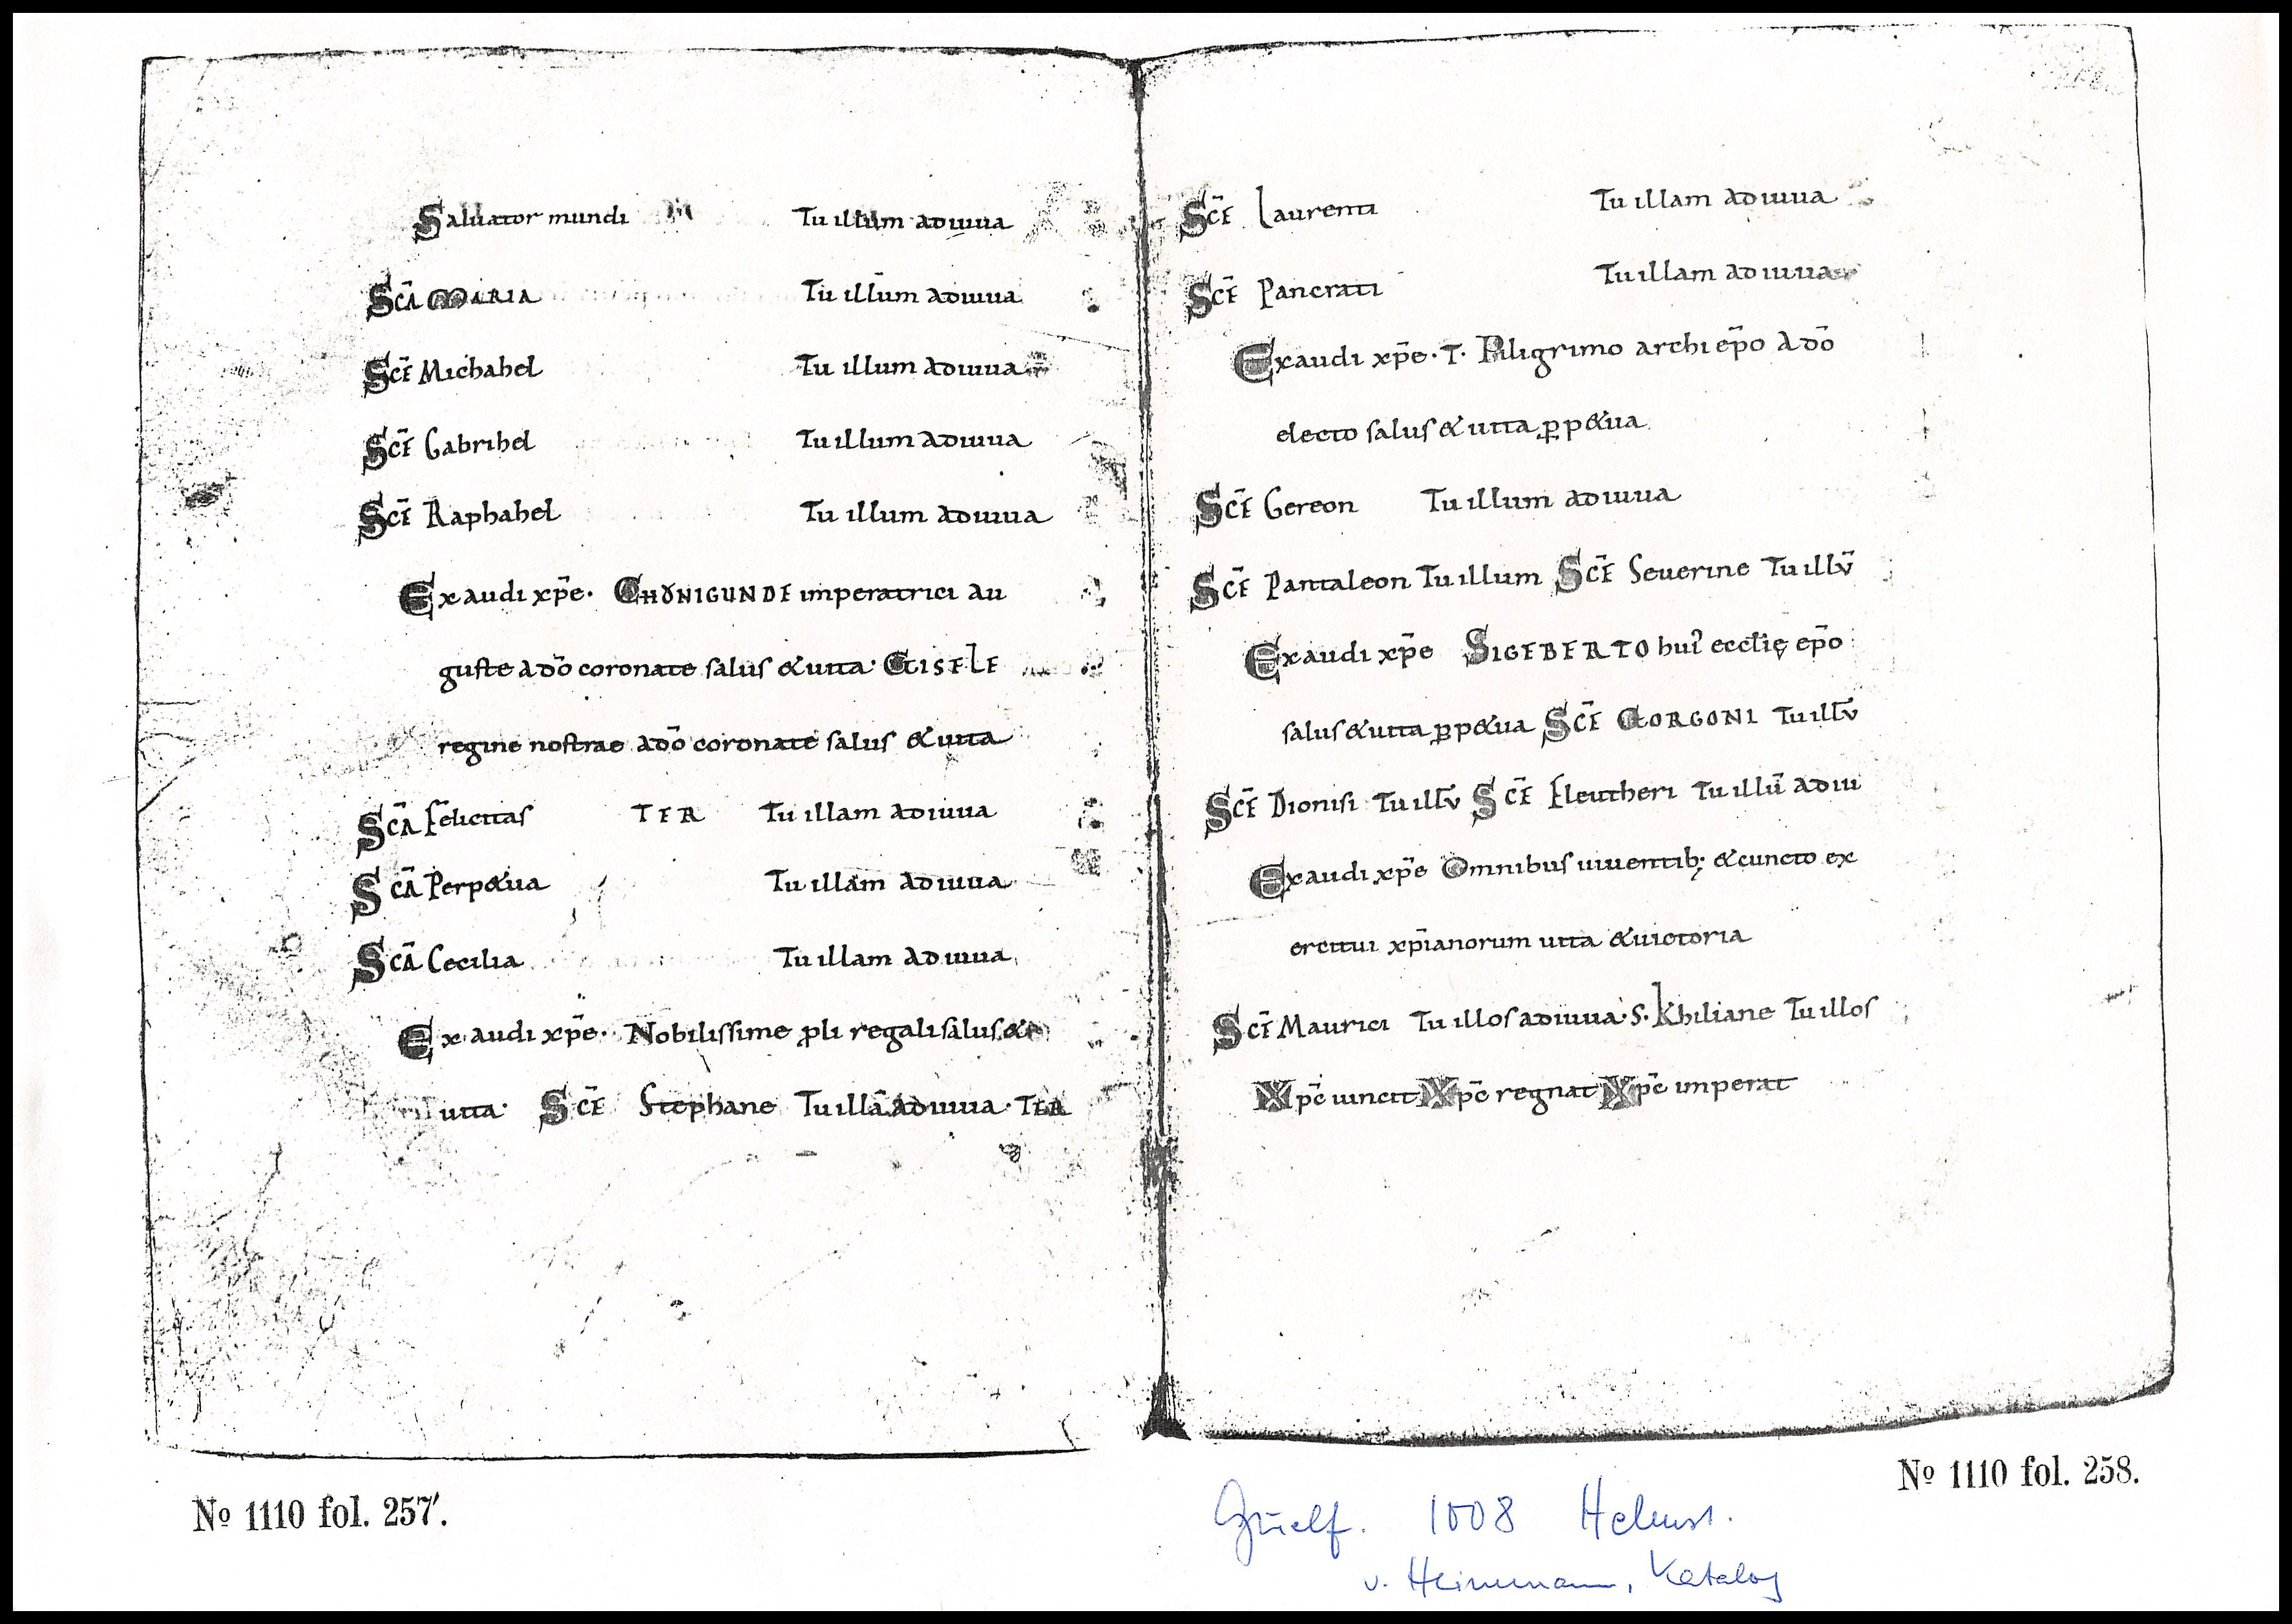 Saluator mundi Tu illum adiuua
SCA MARIA Tu illum adiuua
SCE Michahel Tu illum adiuua
SCE Gabrihel Tu illum adiuua
SCE Raphahel Tu illum adiuua
Exaudi xp̄e· CHVNIGUNDE imperatrici au
guste a dō coronate salus & uita· GISELE
regine nostrae a dō coronate salus & uita
SCĀ Felicitas TER Tu illam adiuua
SCĀ Perp&ua Tu illam adiuua
SCĀ Cecilia Tu illam adiuua
Exaudi xp̄e· Nobilissime ꝓli regali salus &
uita· SCĒ Stephane Tu illā adiuua· TER
SCĒ Laurenti Tu illam adiuua
SCĒ Pancrati Tu illam adiuua
Exaudi xp̄e· T· Piligrimo archiep̄o a dō
electo salus & uita ꝑp&ua
SCĒ Gereon Tu illum adiuua
SCĒ Pantaleon Tu illum SCĒ Seuerine Tu illū
Exaudi xp̄e SIGEBERTO hui᾽ eccłię ep̄o
salus & uita ꝑp&ua SCĒ GORGONI Tu illū
SCĒ Dionisi Tu illū SCĒ Eleutheri Tu illū adiu
Exaudi xp̄e Omnibus uiuentib; & cuncto ex
ercitui xp̄ianorum uita & uictoria
SCĒ Maurici Tu illos adiuua· S· Khiliane Tu illos
Xp̄c uincit Xp̄c regnat Xp̄c imperat
Nº 1110 fol. 257'.
Nº 1110 fol. 258.
Guelf. 1008 Helmst.
v. Heinemann, Katalog